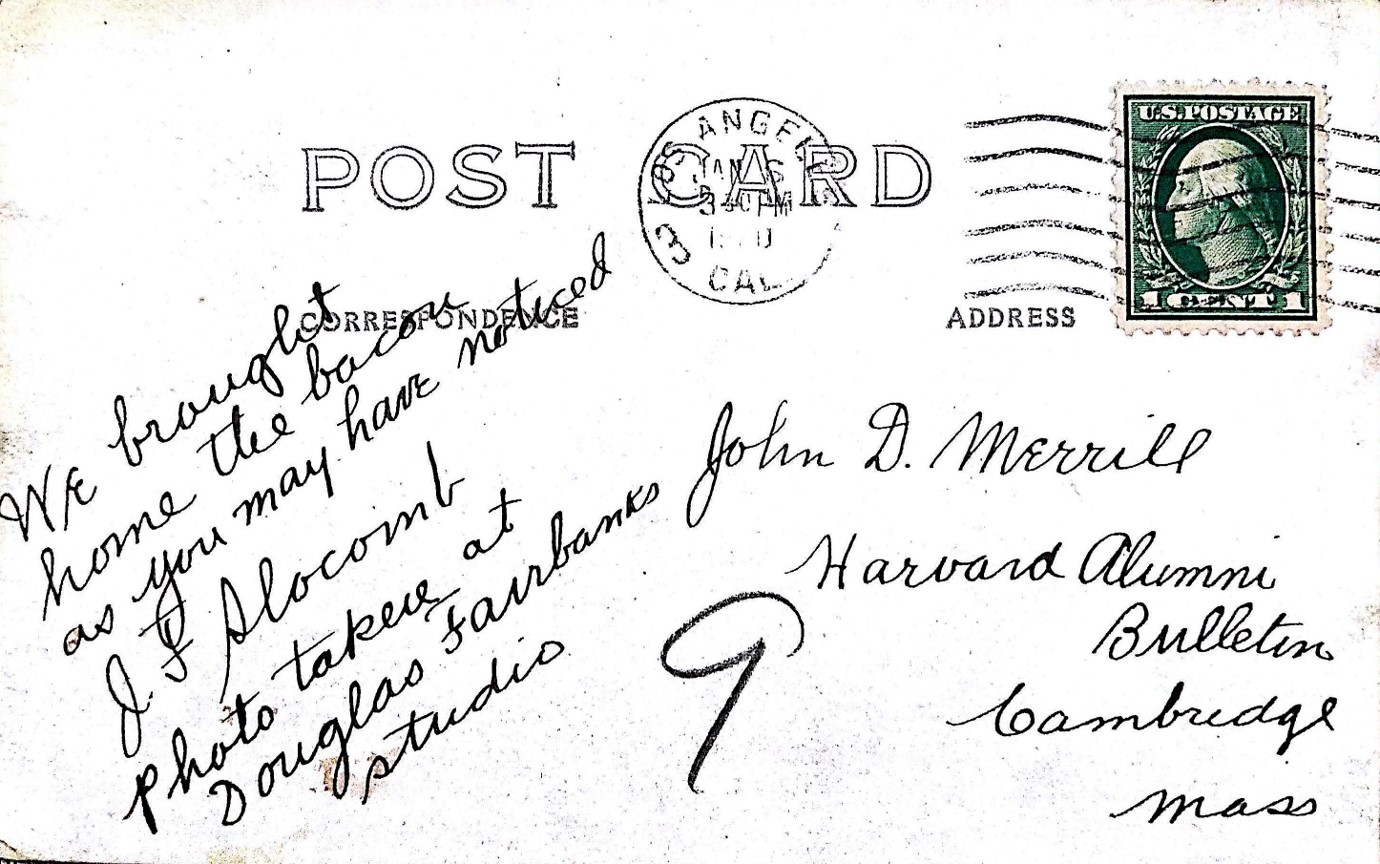 POST CARD
LOS ANGEL
3
JAN
3 30 PM
CAL.
U.S. POSTAGE
1 CENT 1
CORRESPONDENCE
ADDRESS
We brought
home the bacon
as you may have noticed
J F Slocomb
photo taken at
Douglas Fairbanks
studio
John D. Merrill
Harvard Alumni
Bulletin
Cambridge
Mass
9